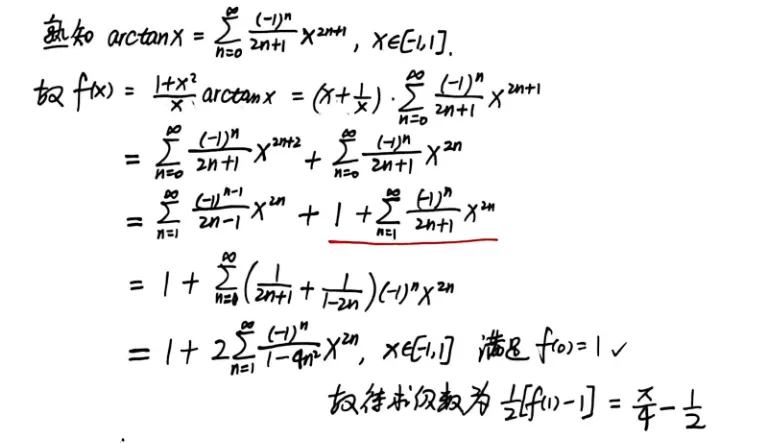 熟知 arctanx = ∑_{n=0}^{∞} (-1)^n/(2n+1) x^{2n+1}, x∈[-1,1].
故 f(x) = (1+x²)/x arctanx = (x+1/x)·∑_{n=0}^{∞} (-1)^n/(2n+1) x^{2n+1}
= ∑_{n=0}^{∞} (-1)^n/(2n+1) x^{2n+2} + ∑_{n=0}^{∞} (-1)^n/(2n+1) x^{2n}
= ∑_{n=1}^{∞} (-1)^{n-1}/(2n-1) x^{2n} + 1 + ∑_{n=1}^{∞} (-1)^n/(2n+1) x^{2n}
= 1 + ∑_{n=1}^{∞} (1/(2n+1) + 1/(1-2n)) (-1)^n x^{2n}
= 1 + 2∑_{n=1}^{∞} (-1)^n/(1-4n²) x^{2n}, x∈[-1,1] 满足 f(0)=1 ✓
故待求级数为 1/2[f(1)-1] = π/4 - 1/2